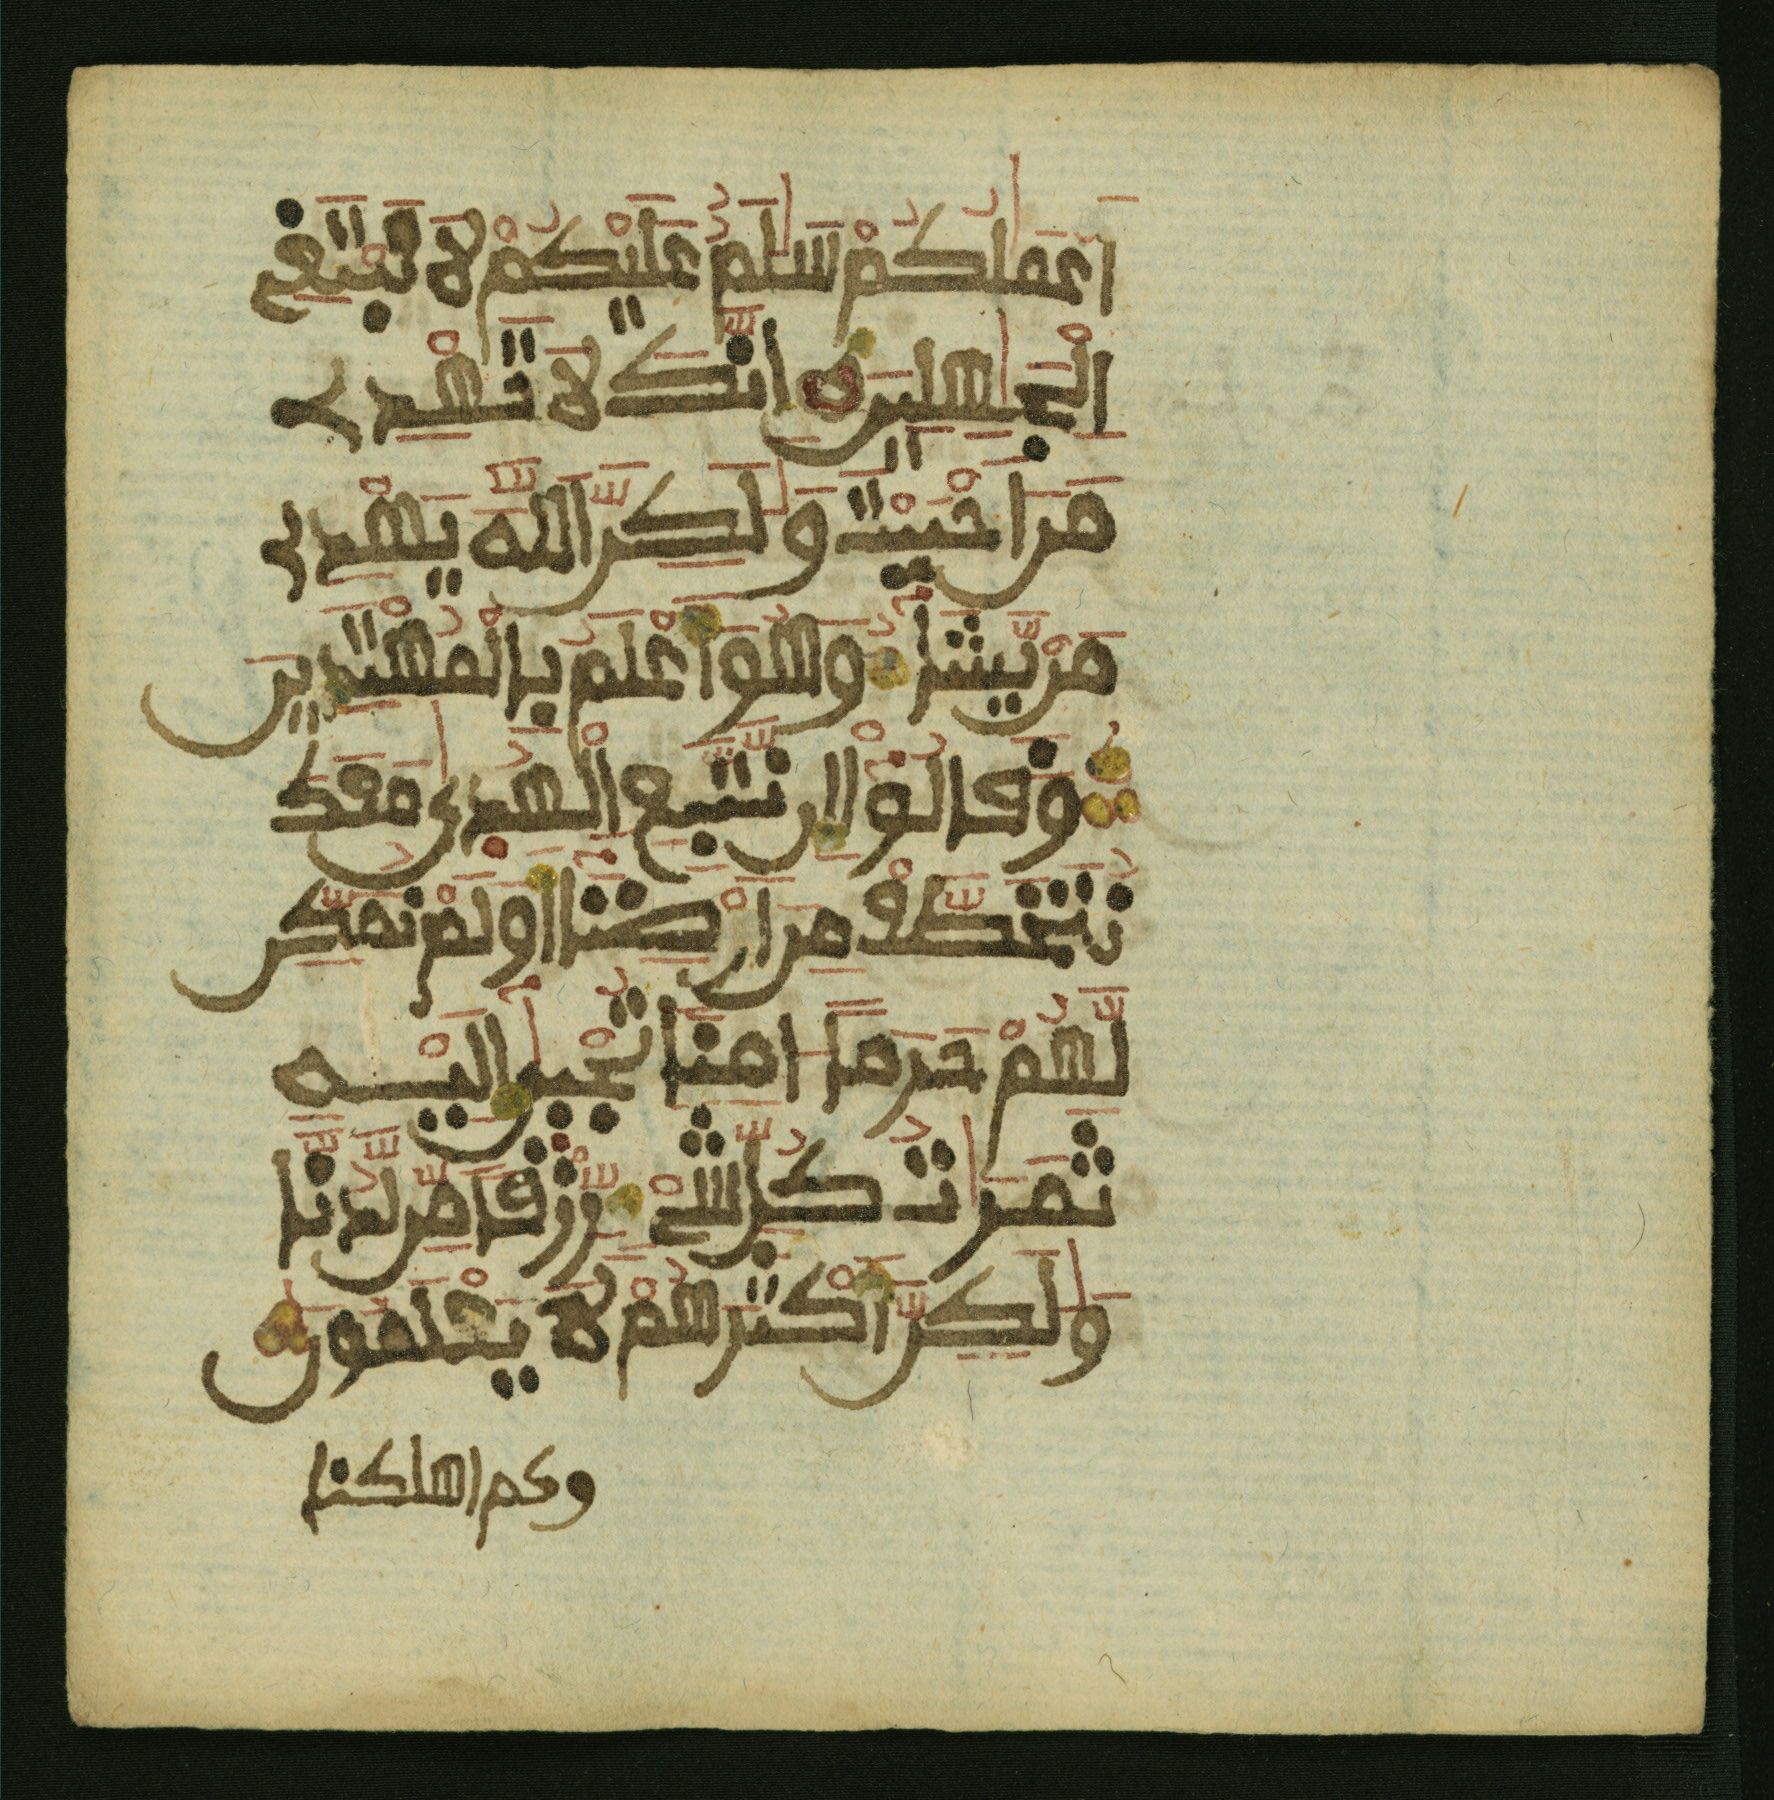 اَعْمَٰلُكُمْ سَلَٰمٌ عَلَيْكُمْ لَا نَبْتَغِے
اِ۬لْجَٰهِلِينَ اِنَّكَ لَا تَهْدِے
مَنَ اَحْبَبْتَ وَلَٰكِنَّ اَ۬للَّهَ يَهْدِے
مَنْ يَّشَآءُ وَهُوَ أَعْلَمُ بِالْمُهْتَدِينَ
وَقَالُوٓاْ إِن نَّتَّبِعِ اِ۬لْهُد۪ىٰ مَعَكَ
نُتَخَطَّفْ مِنَ اَرْضِنَآ أَوَلَمْ نُمَكِّن
لَّهُمْ حَرَماً اٰمِناً تُجْبَىٰٓ إِلَيْهِ
ثَمَرَٰتُ كُلِّ شَےْءٍ رِّزْقاً مِّن لَّدُنَّا
وَلَٰكِنَّ أَكْثَرَهُمْ لَا يَعْلَمُونَ
وكم اهلكنا